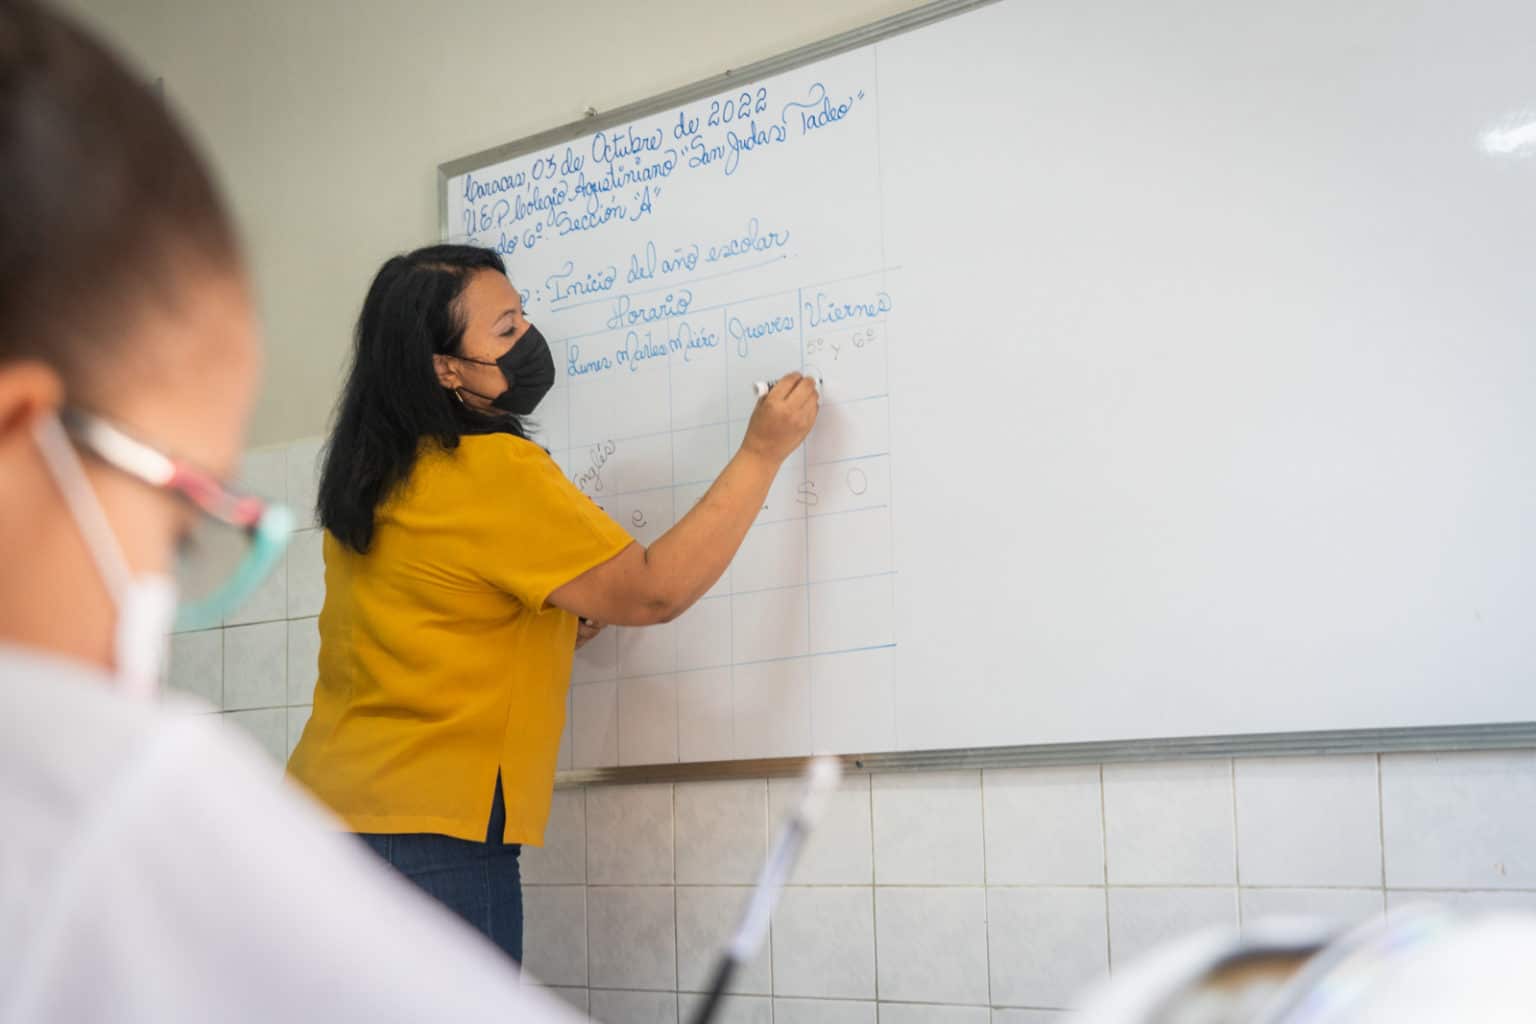 Caracas, 03 de Octubre de 2022
U.E.P. Colegio Agustiniano "San Judas Tadeo"
6º. Sección "A"
: Inicio del año escolar
Horario
Lunes Martes Miérc Jueves Viernes
5º y 6º
Inglés
e S O